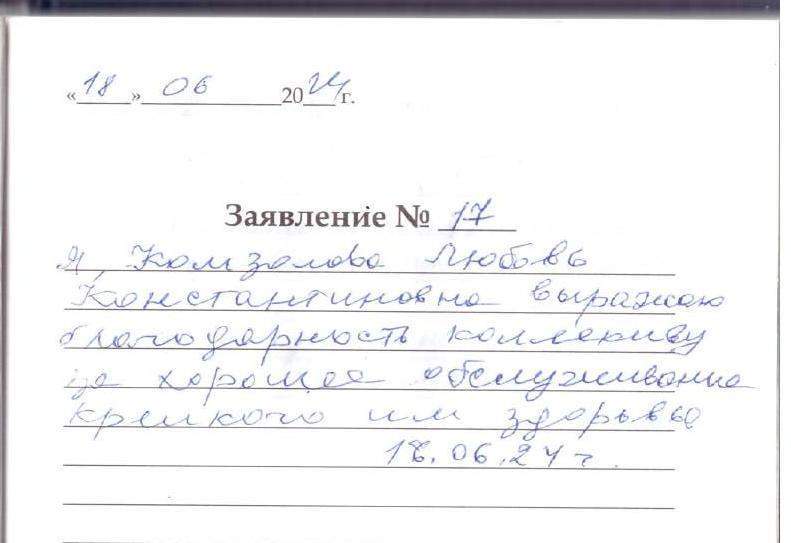 «18» 06 2024 г.
Заявление № 17
Я, Комзолова Любовь
Константиновна выражаю
благодарность коллективу
за хорошее обслуживание
крепкого им здоровья
18.06.24 г.